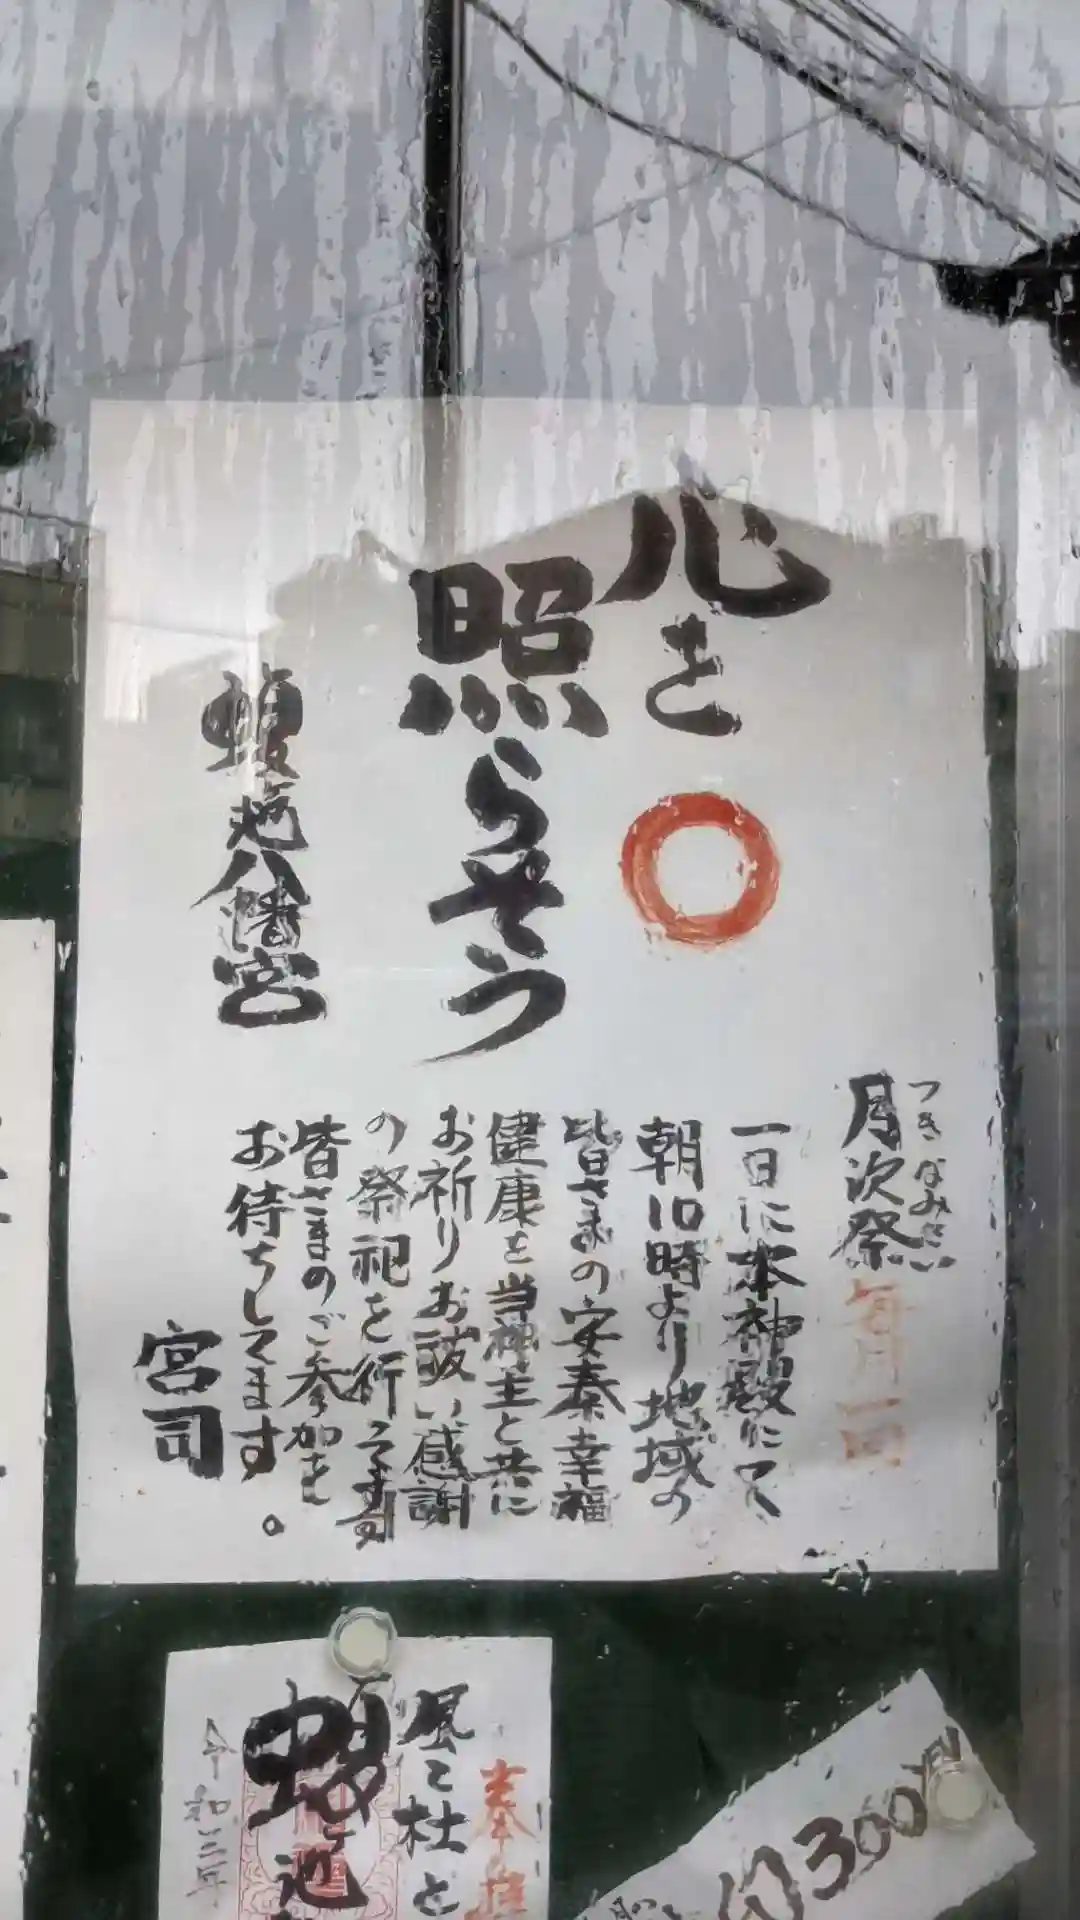 心を
照らそう
蝮ヶ池八幡宮
つきなみさい
月次祭 毎月一回
一日に本神殿にて
朝10時より地域の
皆さまの安泰幸福
健康を当神主と共に
お祈りお祓い感謝
の祭祀を行います
皆さまのご参加を
お待ちしてます。
宮司
奉拝
風と杜と
蝮ヶ池
令和三年
300YEN